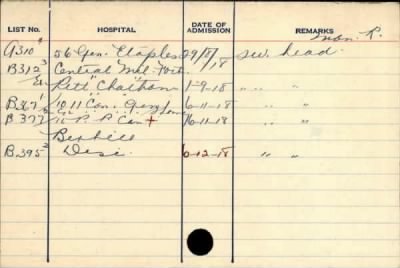 LIST NO. HOSPITAL DATE OF ADMISSION REMARKS
A310 56 Gen. Etaples 29/8/18 sw. head. R.
B312³ Central Mil. Hosp.
Chatham 1-9-18 " "
B367 10 11 Can. Gen. 6-11-18 " "
B377 P. P. Can + 16-11-18
Bexhill
B.395² Disc. 6-12-18 " "